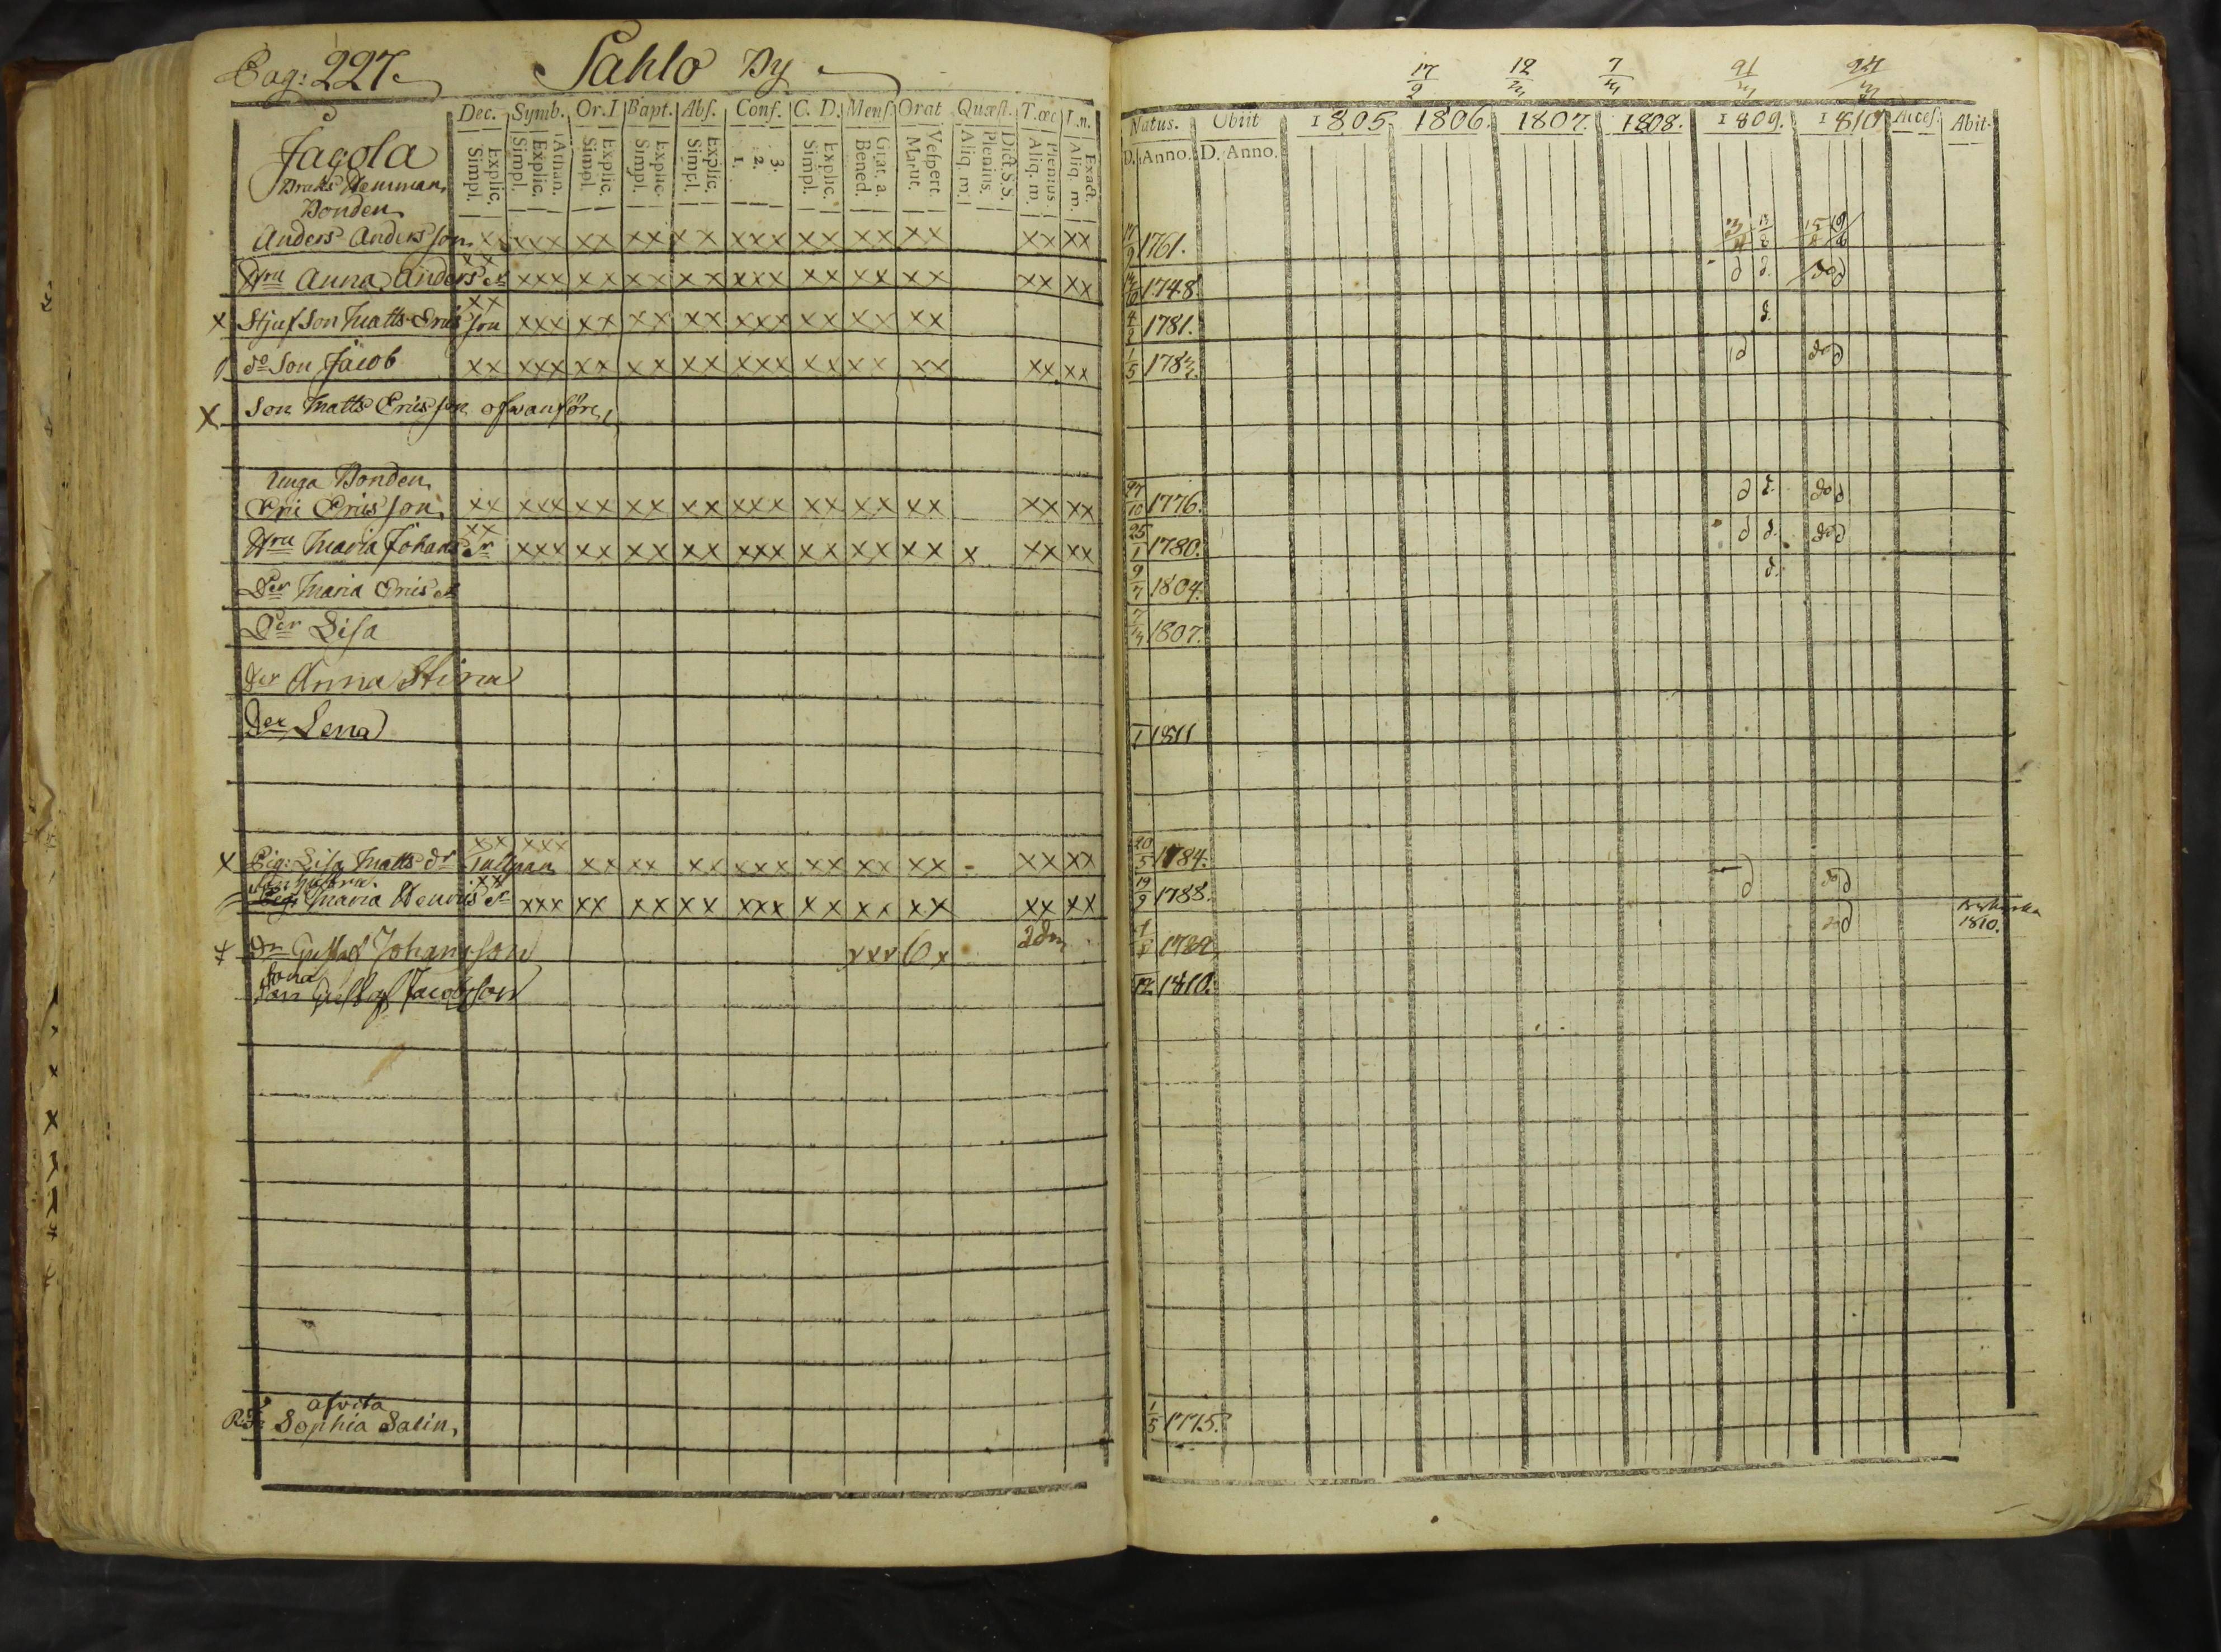 Pag: 227. Sahlo By
17/2 12/3 7/3 21/3 24/3
Dec. Symb. Or. I Bapt. Abs. Conf. C. D. Mens. Orat Quæst. T. œc I. n.
Explic. Simpl. Athan. Explic. Simpl. Explic. Simpl. Explic. Simpl. Explic. Simpl. 3. 2. 1. Explic. Simpl. Grat. a. Bened. Vespert. Matut. Dict. S.S. Plenius. Aliq. m. Plenius. Aliq. m. Exact. Aliq. m.
Natus. Obiit 1805. 1806. 1807. 1808. 1809. 1810. Acces. Abit.
D. Anno. D. Anno.
Jagola
Hemman
Bonden
Anders Andersson xx xxx xx xx xx xxx xx xx xx xx xx 17/9 1761.
Hru Anna Anders dr xx xxx xx xx xx xxx xx xx xx xx xx 1748. d d. dod
x Stjufson Matts Ericsson xx xxx xx xx xx xxx xx xx xx 4/2 1781. d.
do Son Jacob xx xxx xx xx xx xxx xx xx xx xx xx 1/5 178 d dod
x Son Matts Ericsson ofwanföre
Unga Bonden
Eric Ericsson xx xxx xx xx xx xxx xx xx xx xx xx 27/10 1776. d d. dod
Hru Maria Johans dr xx xxx xx xx xx xxx xx xx xx x xx xx 25/1 1780. d d. dod
Der Maria Erics dr 9/7 1804. d.
Der Lisa 7/3 1807.
Der Anna Stina
Der Lena 1/ 1811
x Pig: Lisa Matts dr Tullman xx xxx xx xx xx xxx xx xx xx - xx xx 20/5 1784.
hustru
Pig: Maria Henrics dr xx xxx xx xx xx xxx xx xx xx xx xx 19/9 1788. d dod
Dr Gustaf Johansson xxx 6x 1810.
Son Gustaf Jacobsson 12 1810.
afvita
Sophia Salin, 1/5 1775.